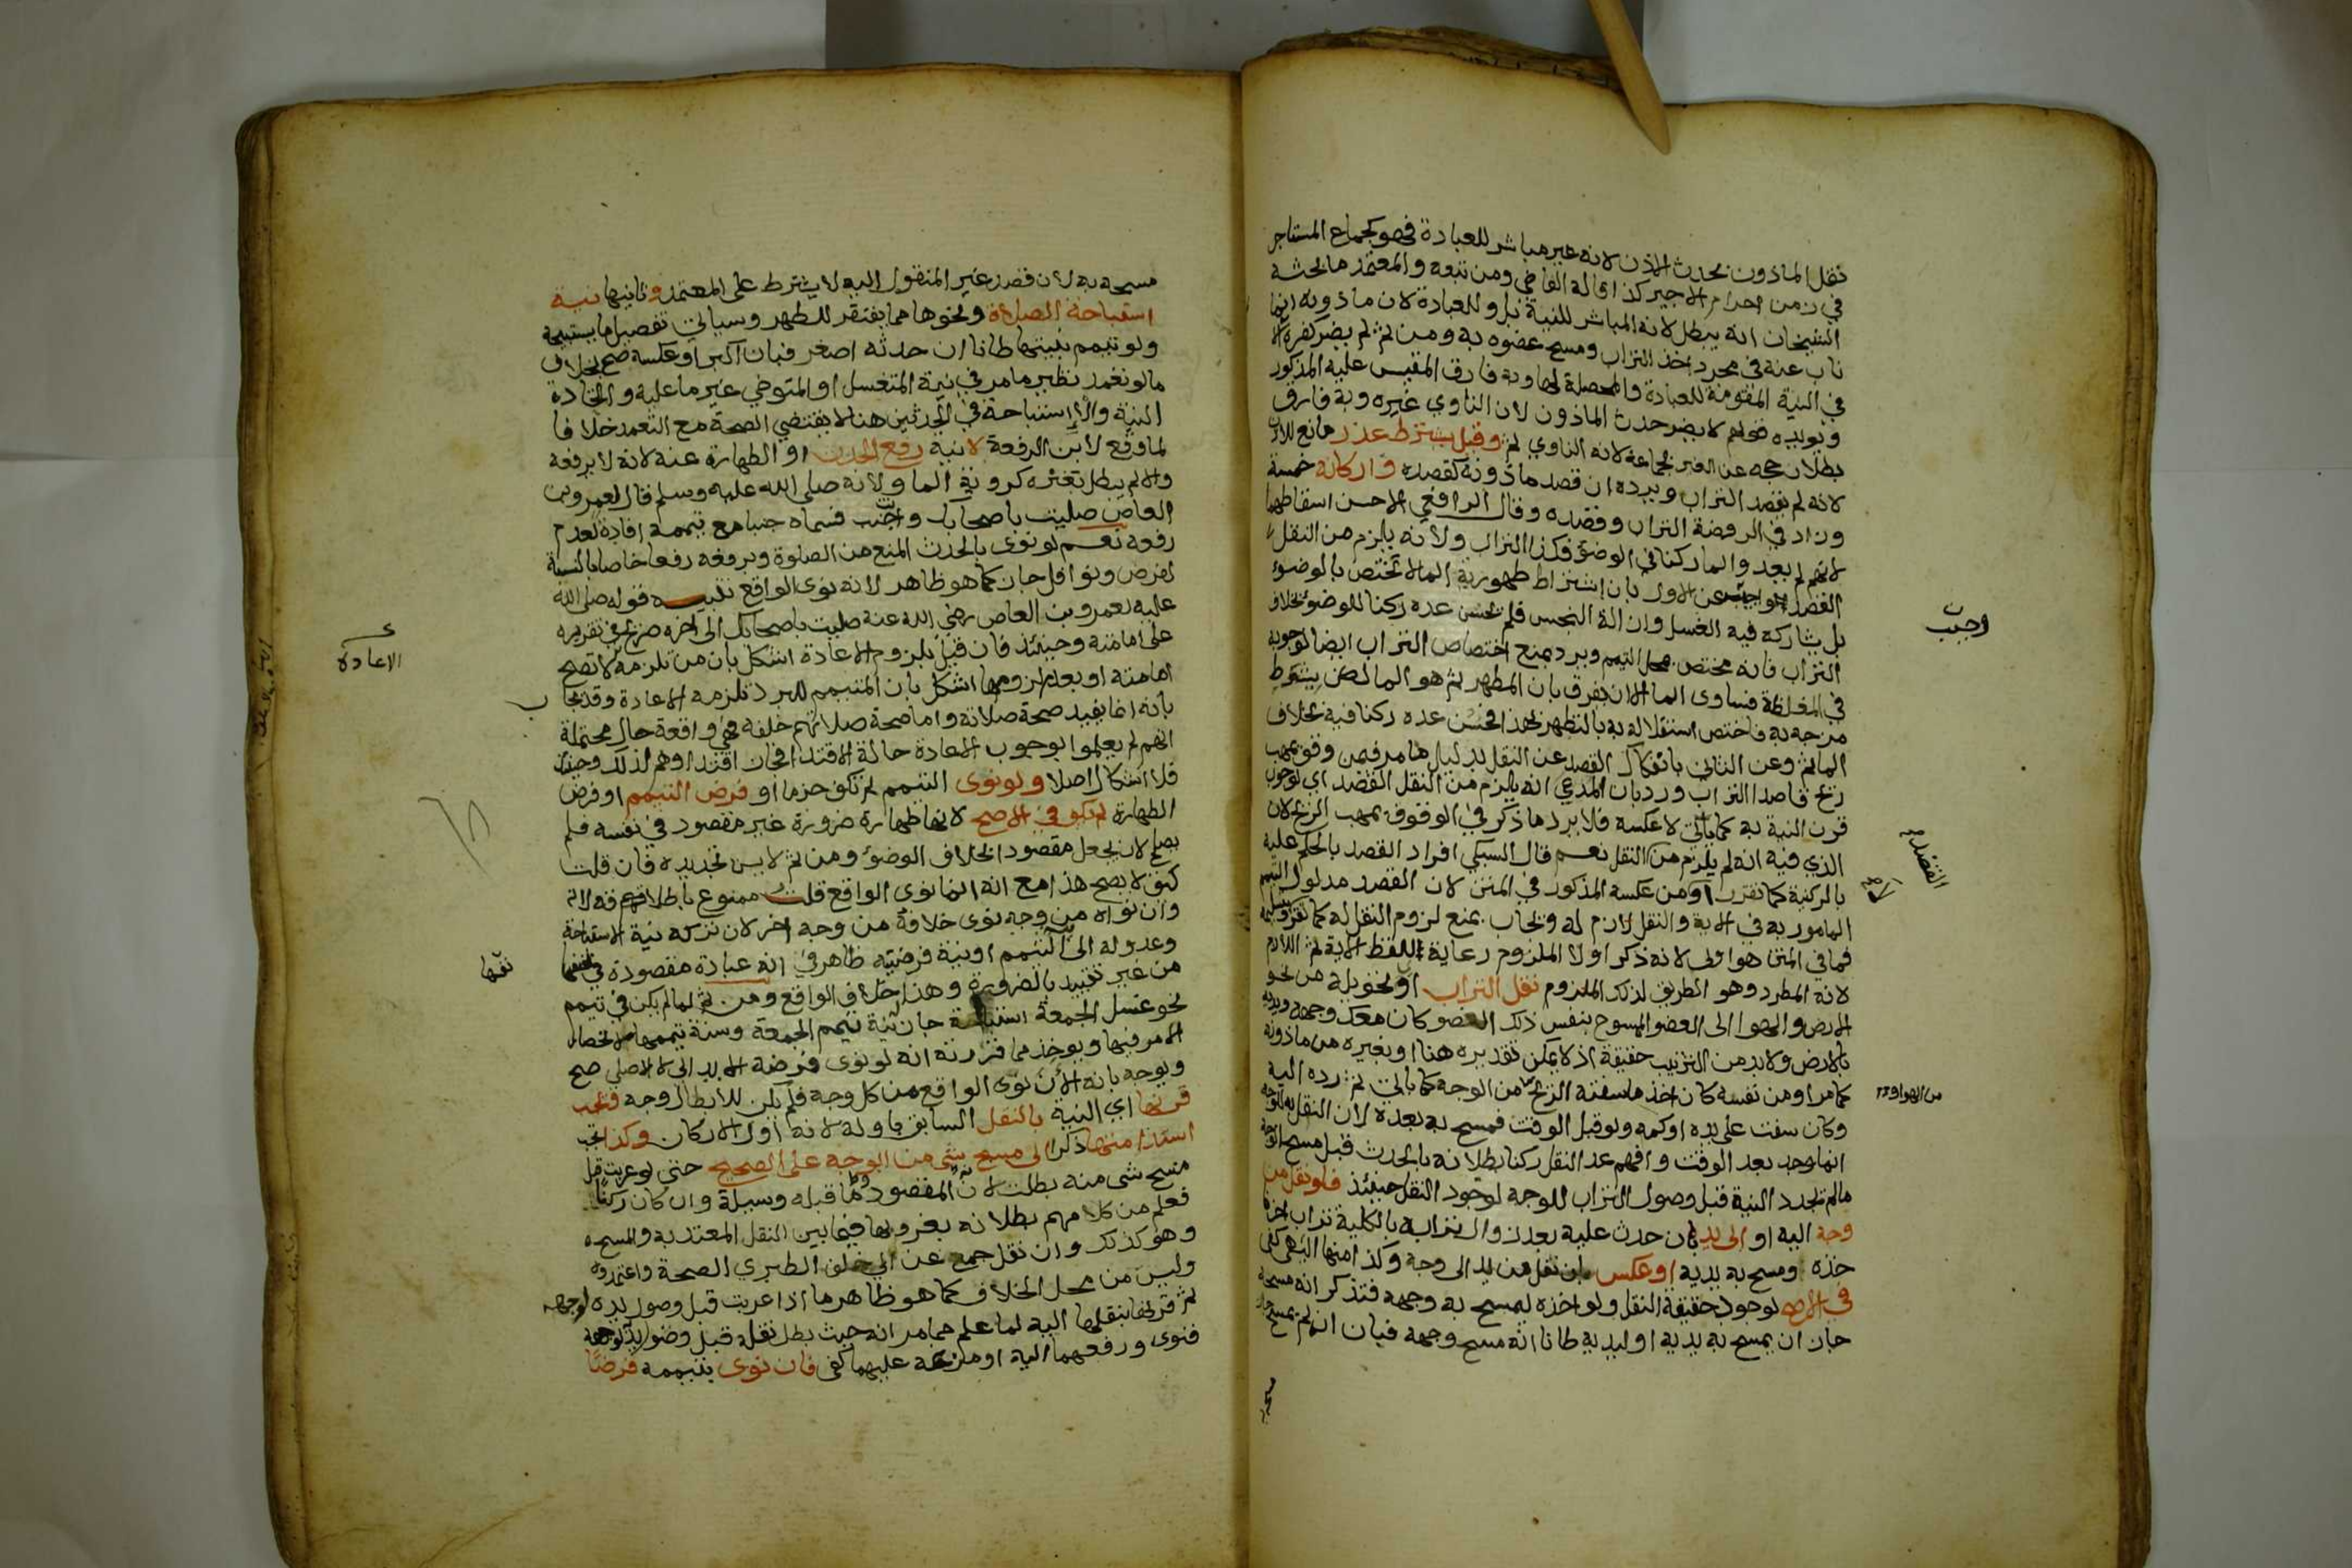 نقل الماذون بحدث الاذن لانه غير مباشر للعبادة فهو كجماع المستاجر
في زمن احرام الاجير كذا قاله القاضي ومن تبعه والمعتمد ما بحثه
الشيخان انه يبطل لانه المباشر للنية بل وللعبادة لان ماذونه انما
ناب عنه في مجرد اخذ التراب ومسح عضوه به ومن ثم لم يضر كفره
في النية المقومة للعبادة والمحصلة لها وبه فارق المقيس عليه المذكور
ويويده قولهم لا يضر حدث الماذون لان الناوي غيره وبه فارق
بطلان حجه عن الغير بجماعه لانه الناوي ثم وقيل يشترط عذر مانع
لانه لم يقصد التراب ويرده ان قصد ماذونه كقصده واركانه خمسة
وزاد في الروضة التراب وقصده وقال الرافعي الاحسن اسقاطهما
لانهم لم يعدوا الما ركنا في الوضو فكذا التراب ولانه يلزم من النقل
القصد عن الاول بان اشتراط طهورية الما لا تختص بالوضوء
بل يشاركه فيه الغسل وازالة النجس فلم يحسن عده ركنا للوضو بخلاف
التراب فانه مختص بمحل التيمم ويرد بمنع اختصاص التراب ايضا لوجوبه
في المغلظة فساوى الما الا ان يفرق بان المطهر ثم هو الما لكن بشرط
مزجه به فاختص استقلاله به بالتطهير لهذا فحسن عده ركنا فيه بخلاف
الما ثم وعن الثاني بانفكاك القصد عن النقل بدليل ما مر فيمن وقف بمهب
ريح قاصدا التراب ورد بان المدعي انه يلزم من النقل القصد اي لوجوب
قرن النية به كما ياتي لا عكسه فلا يرد ما ذكر في الوقوف بمهب الريح لان
الذي فيه انه لم يلزم من النقل نعم قال السبكي افراد القصد بالحكم عليه
بالركنية كما تقرر اومن عكسه المذكور في المتن لان القصد مدلول التيمم
المامور به في الاية والنقل لازم له ويجاب بمنع لزوم النقل له كما تقرر
فما في المتن هو اولى لانه ذكر اولا الملزوم رعاية للفظ الاية ثم اللازم
لانه المطرد وهو الطريق لذلك الملزوم نقل التراب اي تحويله من نحو
الارض والهوا الى العضو الممسوح بنفس ذلك العضو كان معك وجهه ويديه
بالارض ولابد من الترتيب حقيقة اذ لا يمكن تقديره هنا او بغيره من ماذونه
كما مر او من نفسه كان اخذ ما سفته الريح من الوجه كما ياتي ثم رده اليه
وكان سفت على يده او كمه ولو قبل الوقت فمسح به بعده لان النقل به
انما وجد بعد الوقت وافهم عد النقل ركنا بطلانه بالحدث قبل مسح الوجه
مالم تجدد النية قبل وصول التراب للوجه لوجود النقل حينئذ فلو نقل من
وجه اليه او الى يد بان حدث عليه بعد زوال ترابه بالكلية تراب اخر
خذه ومسح به يديه او عكس بان نقل من يد الى وجه وكذا منها اليه كفى
في الاصح لوجود حقيقة النقل ولو اخذه ليمسح به وجهه فتذكر انه مسحه
جاز ان يمسح به يديه او ليديه ظانا انه مسح وجهه فبان انه لم يمسح جاز
مسحه
وجب
القصد
من الهوا ورد
مسحه به لان قصد غير المنقول اليه لا يشترط على المعتمد وثانيها نية
استباحة الصلاة ونحوها مما يفتقر للطهر وسياتي تفصيل ما يستبيحه
ولو تيمم بنيتها ظانا ان حدثه اصغر فبان اكبر او عكسه صح بخلاف
مالو تعمد نظير ما مر في نية المتغسل او المتوضي غير ما عليه واتحاد
النية والاستباحة في الحدثين هنا لا يقتضي الصحة مع التعمد خلافا
لما وقع لابن الرفعة لا نية رفع الحدث او الطهارة عنه لانه لا يرفعه
والا لم يبطل بغيره كروية الما ولانه صلى الله عليه وسلم قال لعمرو بن
العاص صليت باصحابك وانت جنب فسماه جنبا مع تيممه افادة لعدم
رفعه نعم لو نوى بالحدث المنع من الصلوة وبرفعه رفعا خاصا بالنسبة
لفرض ونوافل جاز كما هو ظاهر لانه نوى الواقع تنبيه قوله صلى الله
عليه لعمرو بن العاص رضي الله عنه صليت باصحابك الى اخره صريح في تقريره
على امامته وحينئذ فان قيل بلزوم الاعادة اشكل بان من تلزمه لا تصح
امامته او بعدم لزومها اشكل بان المتيمم للبرد تلزمه الاعادة وقد يجاب
بانه انما يفيد صحة صلاته واما صحة صلاتهم خلفه فهي واقعة حال محتملة
انهم لم يعلموا بوجوب الاعادة حالة الاقتدا فجاز اقتداوهم لذلك وحينئذ
فلا اشكال اصلا ولو نوى التيمم لم تكف جزما او فرض التيمم او فرض
الطهارة لم يكف في الاصح لانها طهارة ضرورة غير مقصود في نفسه فلم
يصلح لان يجعل مقصودا بخلاف الوضو ومن ثم لا يسن تجديده فان قلت
كيف لا يصح هذا مع انه انما نوى الواقع قلت ممنوع باطلاقه لانه
وان نواه من وجه نوى خلافه من وجه اخر لان تركه نية الاستباحة
وعدوله الى نية التيمم او نية فرضيته ظاهر في انه عبادة مقصودة في نفسها
من غير تقييد بالضرورة وهذا خلاف الواقع ومن ثم لما لم يكن في تيمم
نحو غسل الجمعة استباحة جاز نية تيمم الجمعة وسنة تيممها
الامر فيها ويوخذ مما قررته انه لو نوى فرضه الابدالي لا الاصلي صح
ويوجه بانه الان نوى الواقع من كل وجه فلم يكن للابطال وجه ويجب
قرنها اي النية بالنقل السابق باوله لانه اول الاركان وكذا يجب
استدامتها ذكرا الى مسح شي من الوجه على الصحيح حتى لو عزبت قبل
مسح شي منه بطلت لانه المقصود وما قبله وسيلة وان كان ركنا
فعلم من كلامهم بطلانه بعزوبها فيما بين النقل المعتد به والمسح
وهو كذلك وان نقل جمع عن ابي خلف الطبري الصحة واعتمدوه
وليس من محل الخلاف كما هو ظاهر ما اذا عزبت قبل وصول يده لوجهه
ثم قرنها بنقلها اليه لما علم مما مر انه حيث بطل نقله قبل وضع يده لوجهه
فنوى ورفعهما اليه او مرغه عليهما كفى فان نوى بتيممه فرضا
الاعادة
نفسها